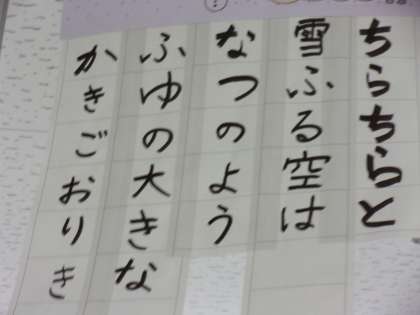 ちらちらと
雪ふる空は
なつのよう
ふゆの大きな
かきごおりき